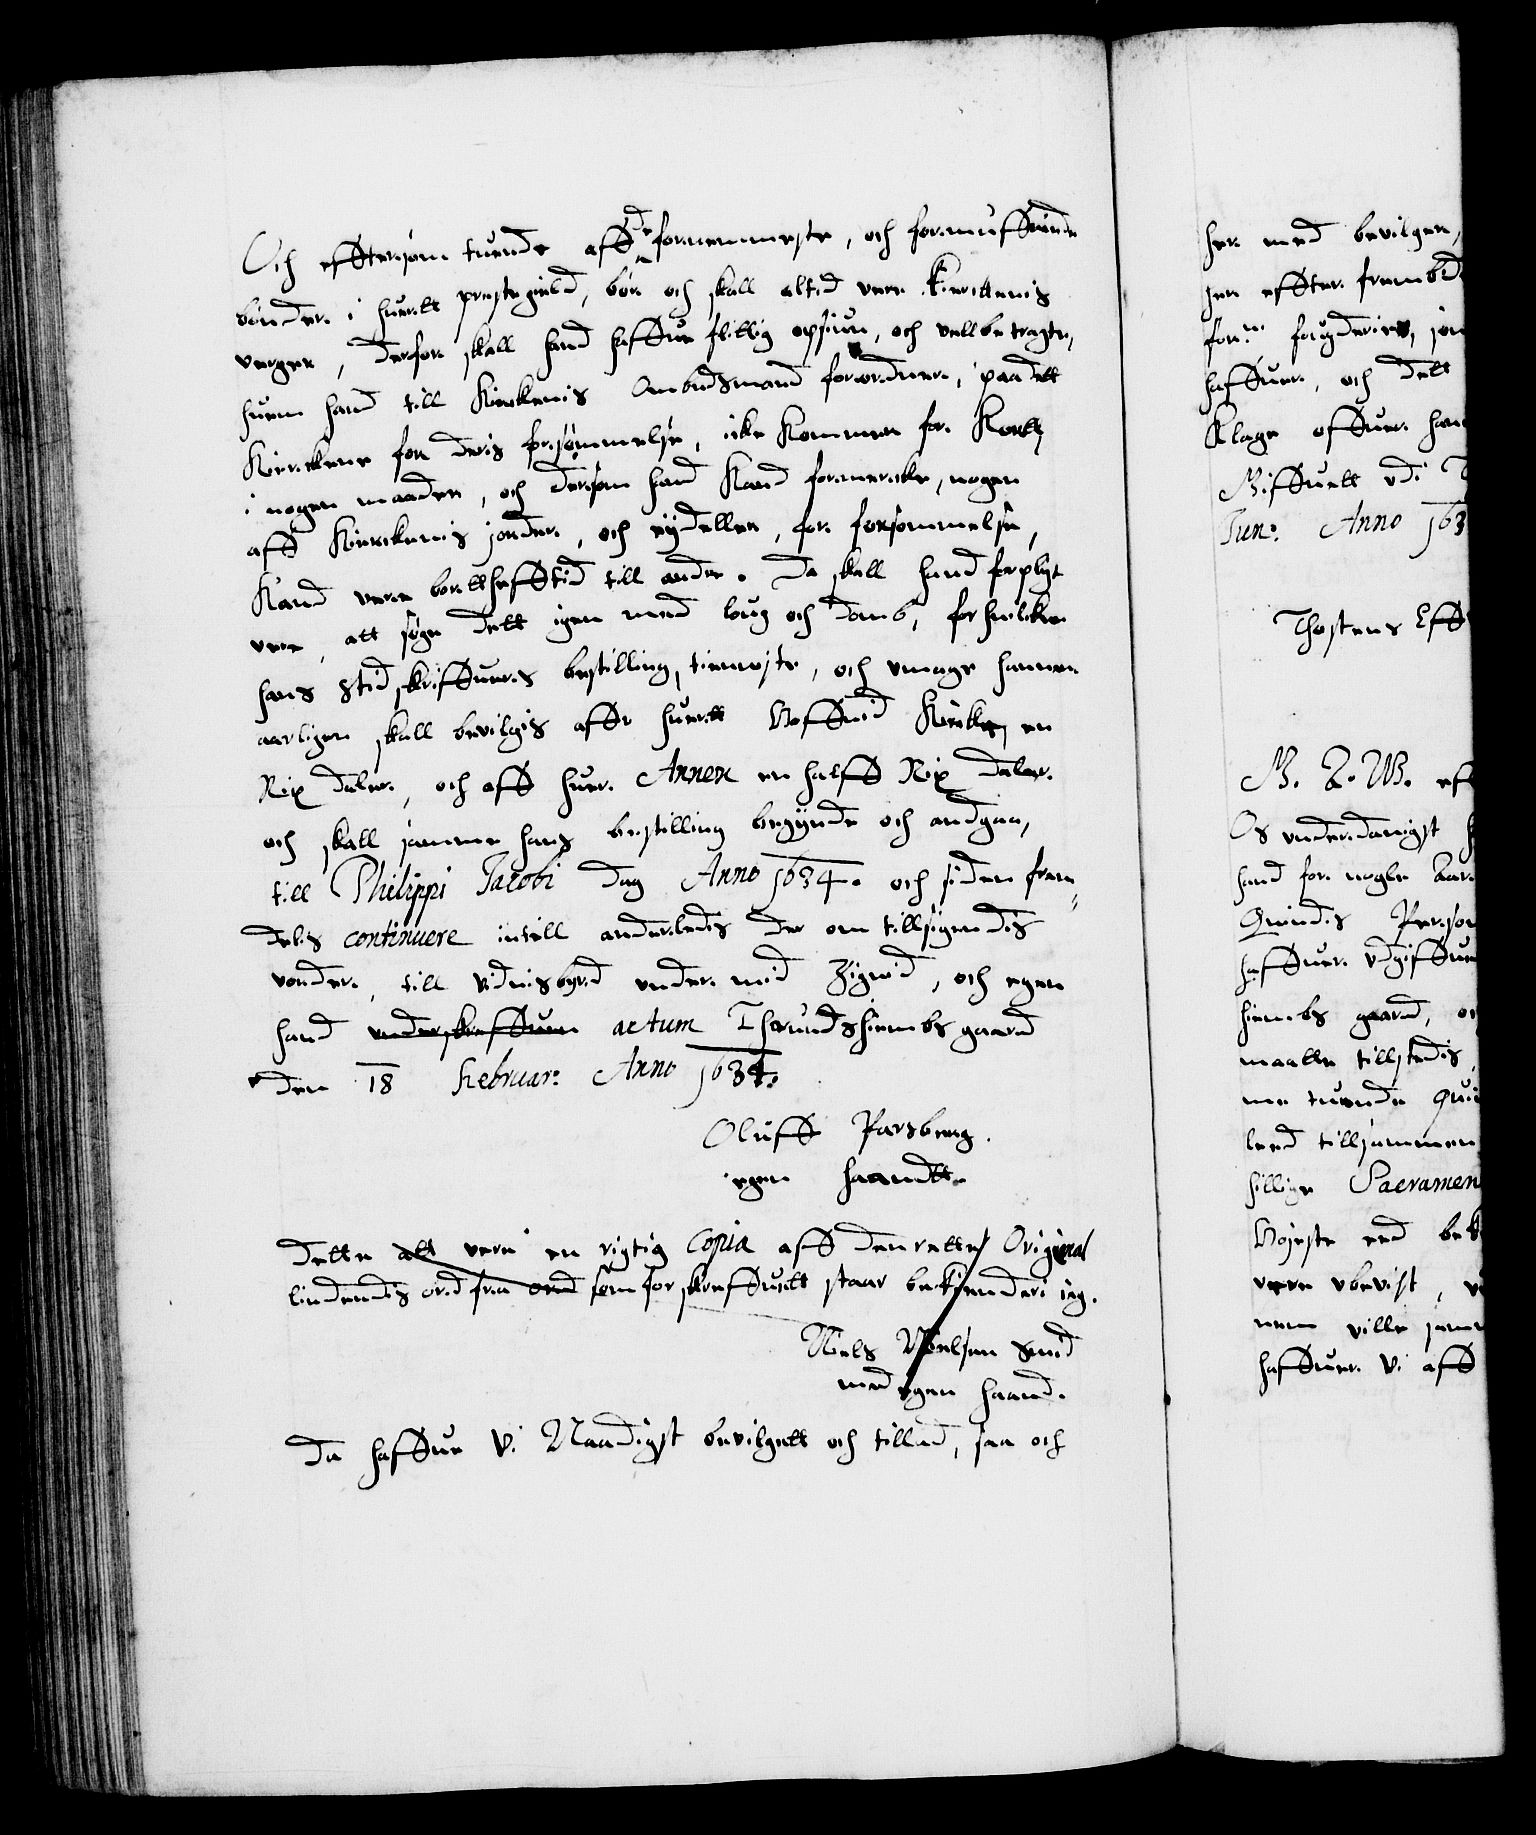 Och effterson tuende aff de fornemmeste, och formuffuende
bönder i huertt prestegield, bör och skall altid vere Kierckenis
verger, derfor skall hand haffue flittig opsiun, och vell betragte,
huem hand till Kirckenis Ombudsmand forordner, paa dett
Kirckene for deris forsømmelse, icke Kommer for Kortt,
i nogen maader, och dersom hand Kand formercke, nogen
aff Kierckenis jorder, och eydeller, for forsommelse,
Kand vere bortthefftid till andre. Da skall hand forpligt
vere, att søge dett igen med loug och domb, for huilcken
hans Stid skriffueris bestilling, tienniste, och vmage hannem
aarligen skall bevilgis affr huertt Hoffuid Kircke, en
Rix daler, och aff huer Annex en halff Rix daler.
och skall samme hans bestilling begynde och andgaa,
till Philippi Jacobi dag Anno 1634. och siden frem
delis continuere intill anderledis der om tillsigendis
vorder, till vidnisbyrd vnder mid Zignid, och egen
hand vnderskreffuen actum Throundshiembs gaard
den 18 Februar: Anno 1634.
Oluff Parsberg.
egen haandtt.
Dette att vere en rigtig Copia aff den rette Original
liudendis ord fra ord som forskreffuett staar bekiender ieg.
Niels Nielsen Smid
med egen haand.
Da haffue Vi Naadigst bevilgett och tillad, saa och
her med bevilger,
her effter frembd
for: 
haffuer, och dett
Klage offuer han
Giffuett vdi
Jun: Anno 163
Thostens Eff
G. A. W. eff
Os vnderdanigst
hand for nogle Aar
Quindis Person
haffuer vdgiffue
hiembs gaard, oc
maatte tillstedis,
me tuende Qui
leed tillsammen
hillige Sacramen
Høieste eed bek
vere vbevist, v
nem ville sam
haffuer Vi aff